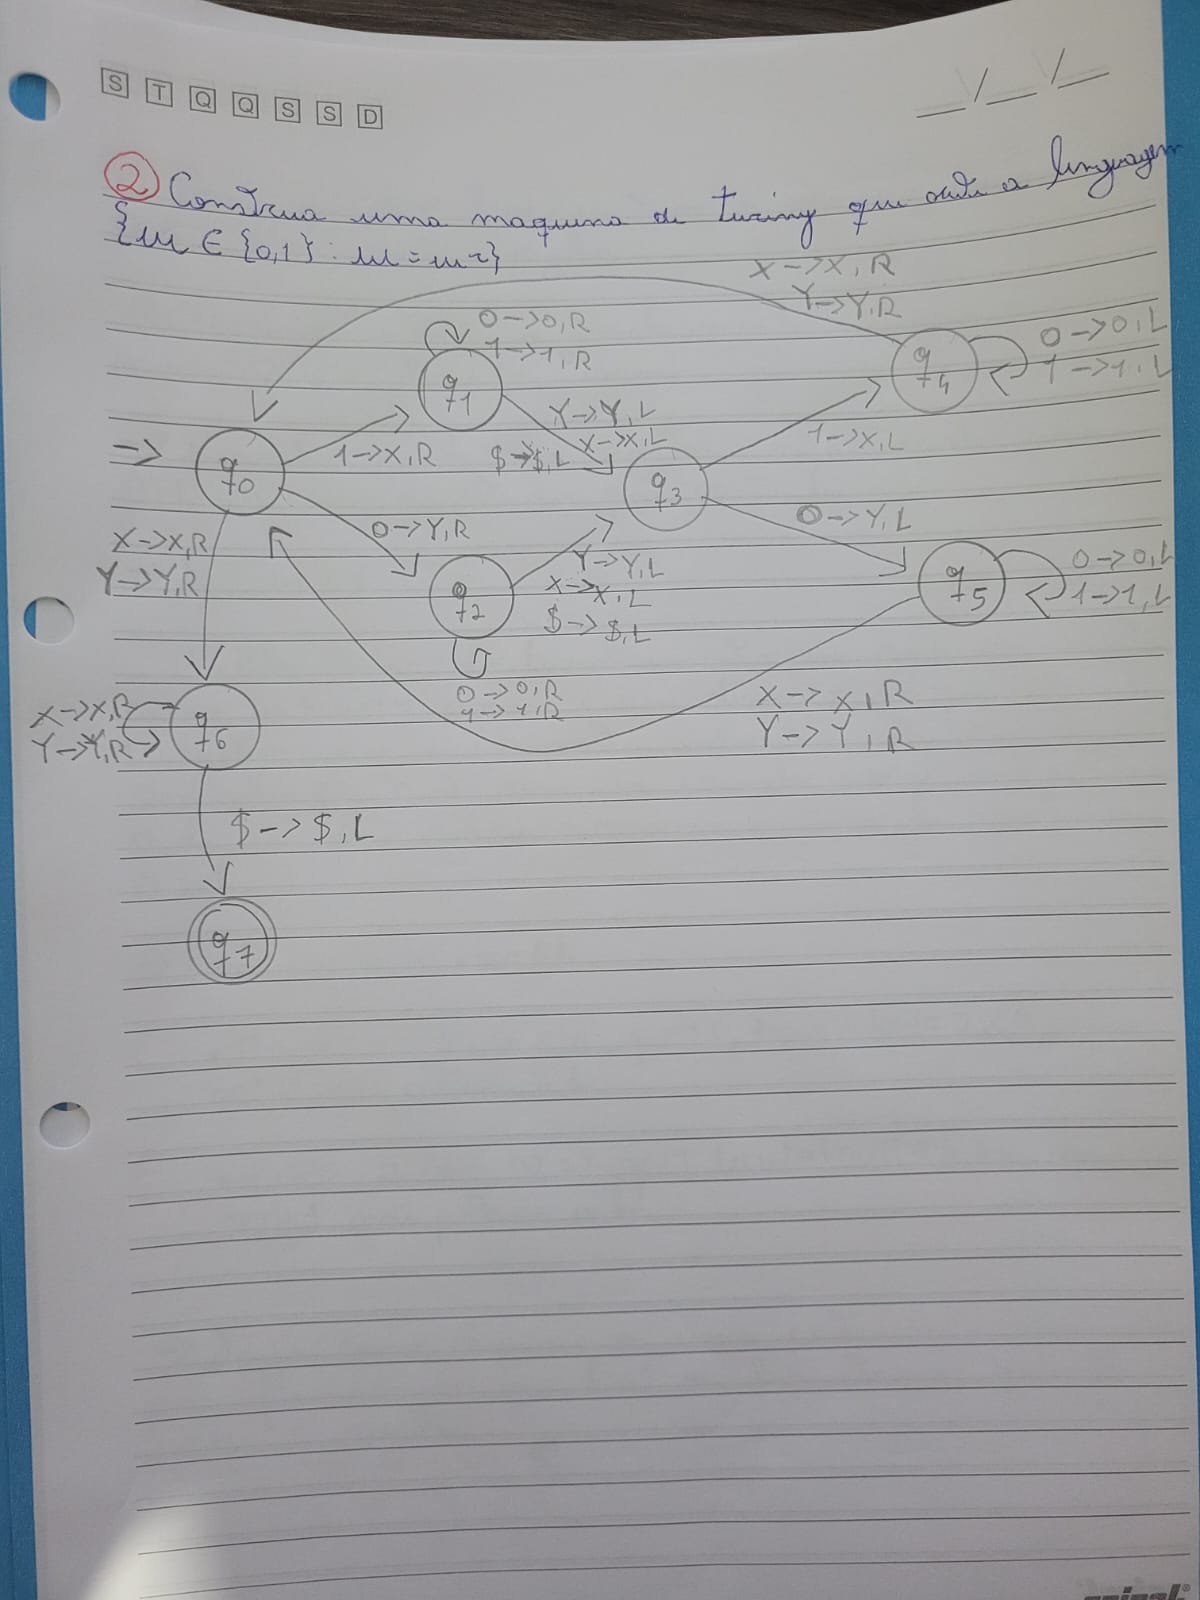 S T Q Q S S D
__/__/__
② Construa uma maquina de turing que aceita a linguagem
{w ∈ {0,1} : w = wr}
X->X,R
Y->Y,R
0->0,R
1->1,R
0->0,L
1->1,L
q1
q4
Y->Y,L
X->X,L
$->$,L
1->X,R
1->X,L
q0
q3
0->Y,R
0->Y,L
X->X,R
Y->Y,R
q2
Y->Y,L
X->X,L
$->$,L
q5
0->0,L
1->1,L
0->0,R
1->1,R
X->X,R
Y->Y,R
X->X,R
Y->Y,R
q6
$->$,L
q7